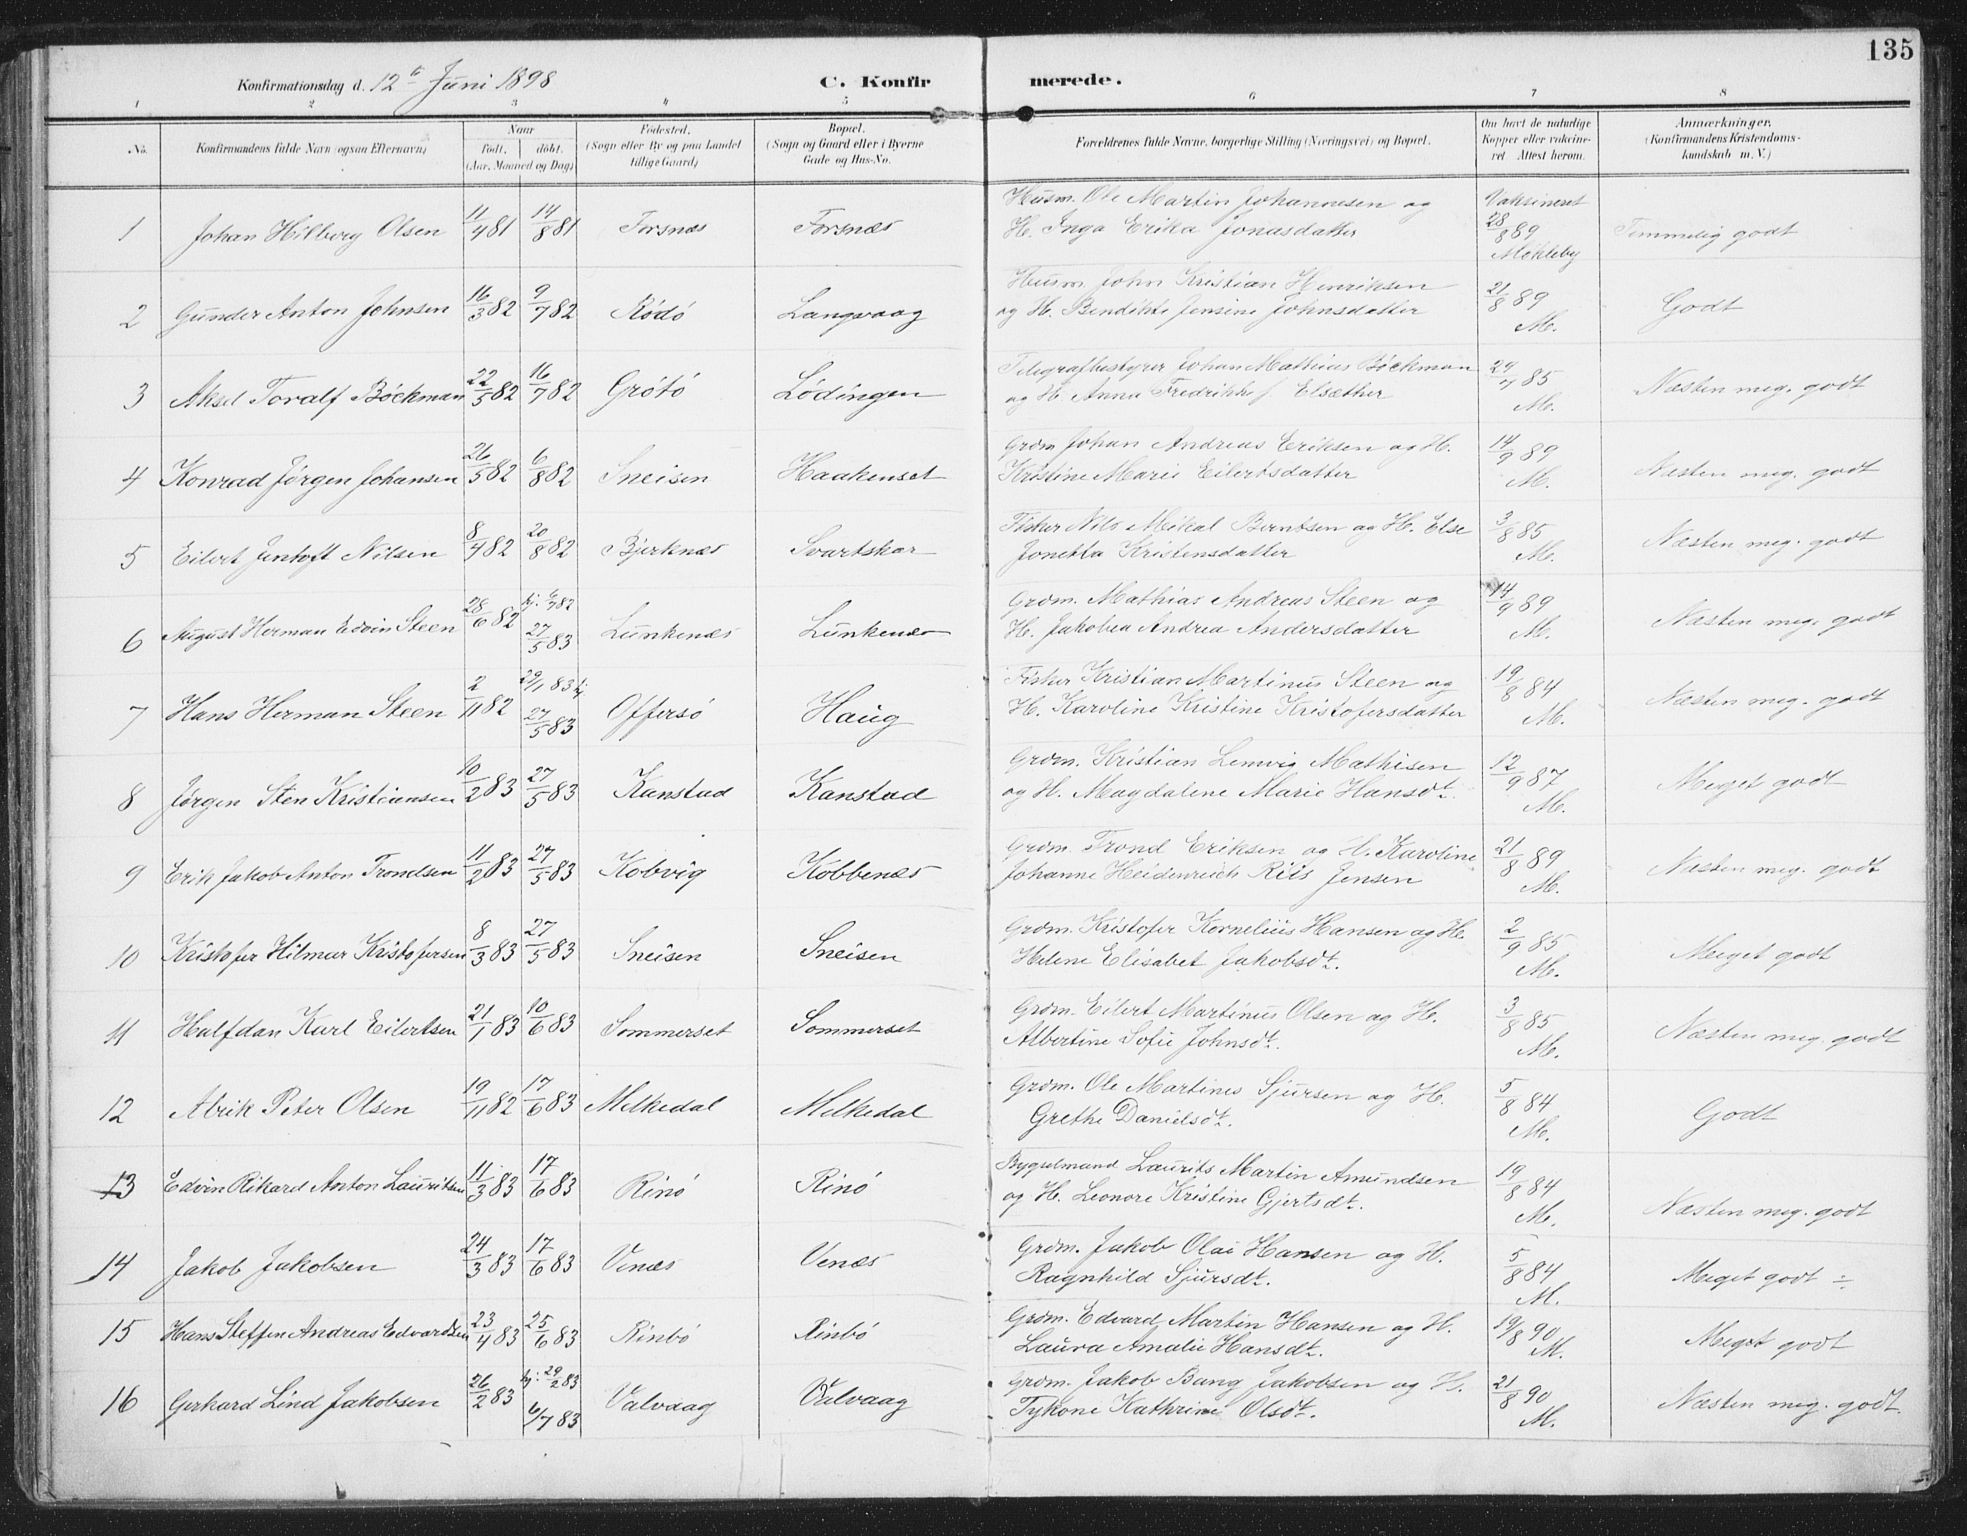 135
Konfirmationsdag d. 12te Juni 1898 C. Konfirmerede.
1 2 3 4 5 6 7 8
No. Konfirmandens fulde Navn (ogsaa Efternavn) Naar født. døbt. (Aar, Maaned og Dag) Fødested. (Sogn eller By og paa Landet tillige Gaard) Bopæl. (Sogn og Gaard eller i Byerne Gade og Hus-No. Forældrenes fulde Navne, borgerlige Stilling (Næringsvei) og Bopæl. Om havt de naturlige Kopper eller vakcineret Attest herom. Anmærkninger. (Konfirmandens Kristendomskundskab m. V.)
1 Johan Hilberg Olsen 11/4 81 14/8 81 Forsnæs Forsnæs Husm. Ole Martin Johannesen og H. Inga Erika Jonasdatter Vaksineret 28/8 89 Møkleby Temmelig godt
2 Gunder Anton Johnsen 16/3 82 9/7 82 Rödö Langvaag Husm. John Kristian Henriksen og H. Bendikte Jensine Johnsdatter 21/8 89 M. Godt
3 Aksel Toralf Böckman 22/5 82 16/7 82 Grötö Lödingen Telegrafbestyrer Johan Mathias Böckman og H. Anna Fredrikke f Elsæther 85 M. Næsten meg. godt
4 Konrad Jørgen Johansen 26/5 82 6/8 82 Sneisen Haakenset Grdm Johan Andreas Eriksen og H. Kristine Marie Eilertsdatter 14/9 89 M. Næsten meg. godt
5 Eilert Jentoft Nilsen 8/4 82 20/8 82 Bjerknæs Svartskar Fisker Nils Mikal Berntsen og H. Else Jonetta Kristensdatter 3/8 85 M. Næsten meg. godt
6 August Herman Edvin Steen 28/6 82 hj: 6/7 82 27/5 83 Lunkenæs Lunkenæs Grdm. Mathias Andreas Steen og H. Jakobea Andrea Andersdatter 14/9 89 M. Næsten meg. godt
7 Hans Herman Steen 2/11 82 29/1 83 hj 27/5 83 Offersö Haug Fisker Kristian Martinus Steen og H. Karoline Kristine Kristofersdatter 19/8 84 M. Næsten meg. godt
8 Jörgen Sten Kristiansen 10/2 83 27/5 83 Kanstad Kanstad Grdm. Kristian Lemvig Mathisen og H. Magdalene Marie Hansdt. 12/9 87 M. Meget godt
9 Erik Jakob Anton Trondsen 11/2 83 27/5 83 Kobvig Kobbenæs Grdm. Trond Eriksen og H. Karoline Johanne Heidenreich Riis Jensen 21/8 89 M. Næsten meg. godt
10 Kristofer Hilmar Kristofersen 8/3 83 27/5 83 Sneisen Sneisen Grdm. Kristofer Kornelius Hansen og H. Helene Elisabet Jakobsdt. 2/9 85 M. Meget godt
11 Halfdan Karl Eilertsen 21/1 83 10/6 83 Sommerset Sommerset Grdm. Eilert Martinus Olsen og H. Albertine Sofie Johnsdt. 3/8 85 M. Næsten meg. godt
12 Alrik Peter Olsen 19/11 82 17/6 83 Melkedal Melkedal Grdm. Ole Martines Sjursen og H. Grethe Danielsdt. 5/8 84 M. Godt
13 Edvin Rikard Anton Lauritsen 11/3 83 17/6 83 Rinö Rinö Bygselmand Laurits Martin Amundsen og H. Leonore Kristine Gjertsdt. 19/8 84 M. Næsten meg. godt
14 Jakob Jakobsen 24/3 83 17/6 83 Venæs Venæs Grdm. Jakob Olai Hansen og H. Ragnhild Sjursdt. 5/8 84 M. Meget godt ÷
15 Hans Steffen Andreas Edvardsen 23/4 83 25/6 83 Rinbö Rinbö Grdm. Edvard Martin Hansen og H. Laura Amalie Hansdt. 19/8 90 M. Meget godt
16 Gerhard Lind Jakobsen 26/2 83 hj: 29/2 83 6/7 83 Valvaag Valvaag Grdm. Jakob Bang Jakobsen og H. Tykone Kathrine Olsdt. 21/8 90 M. Næsten meg. godt.